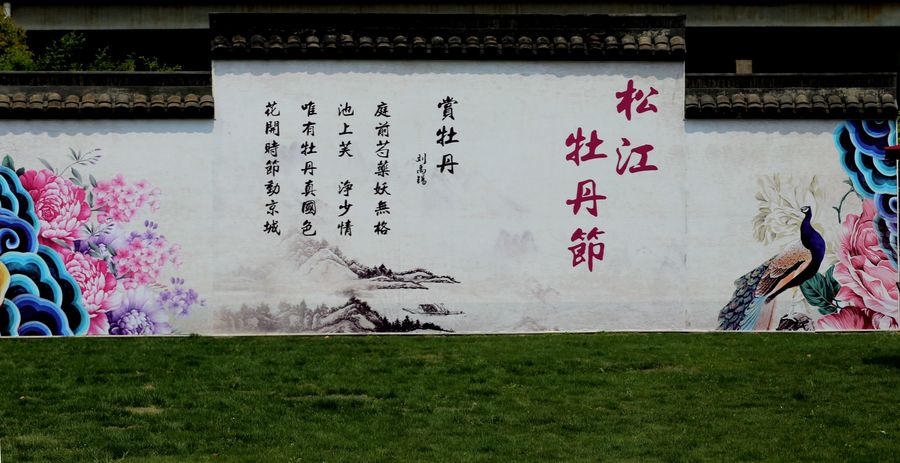 松江
牡丹節
賞牡丹
刘禹锡
庭前芍藥妖無格
池上芙 淨少情
唯有牡丹真國色
花開時節動京城